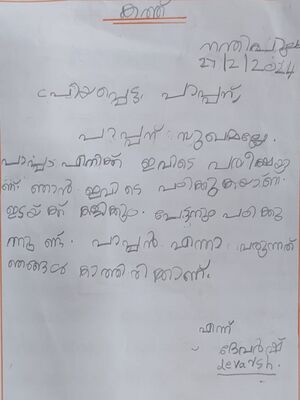 കത്ത്
27/2/2024
പ്രിയപ്പെട്ട പാപ്പന്,
പാപ്പന് സുഖമല്ലേ.
എനിക്ക് ഇവിടെ പരീക്ഷയാ
ണ് ഞാൻ ഇവിടെ പഠിക്കുകയാണ്.
ഇടയ്ക്ക് കളിക്കും. ചേട്ടനും പഠിക്കു
ന്നുണ്ട്. പാപ്പൻ എന്നാ വരുന്നത്
ഞങ്ങൾ കാത്തിരിക്കാണ്.
എന്ന്
ദേവർഷ്
devarsh.